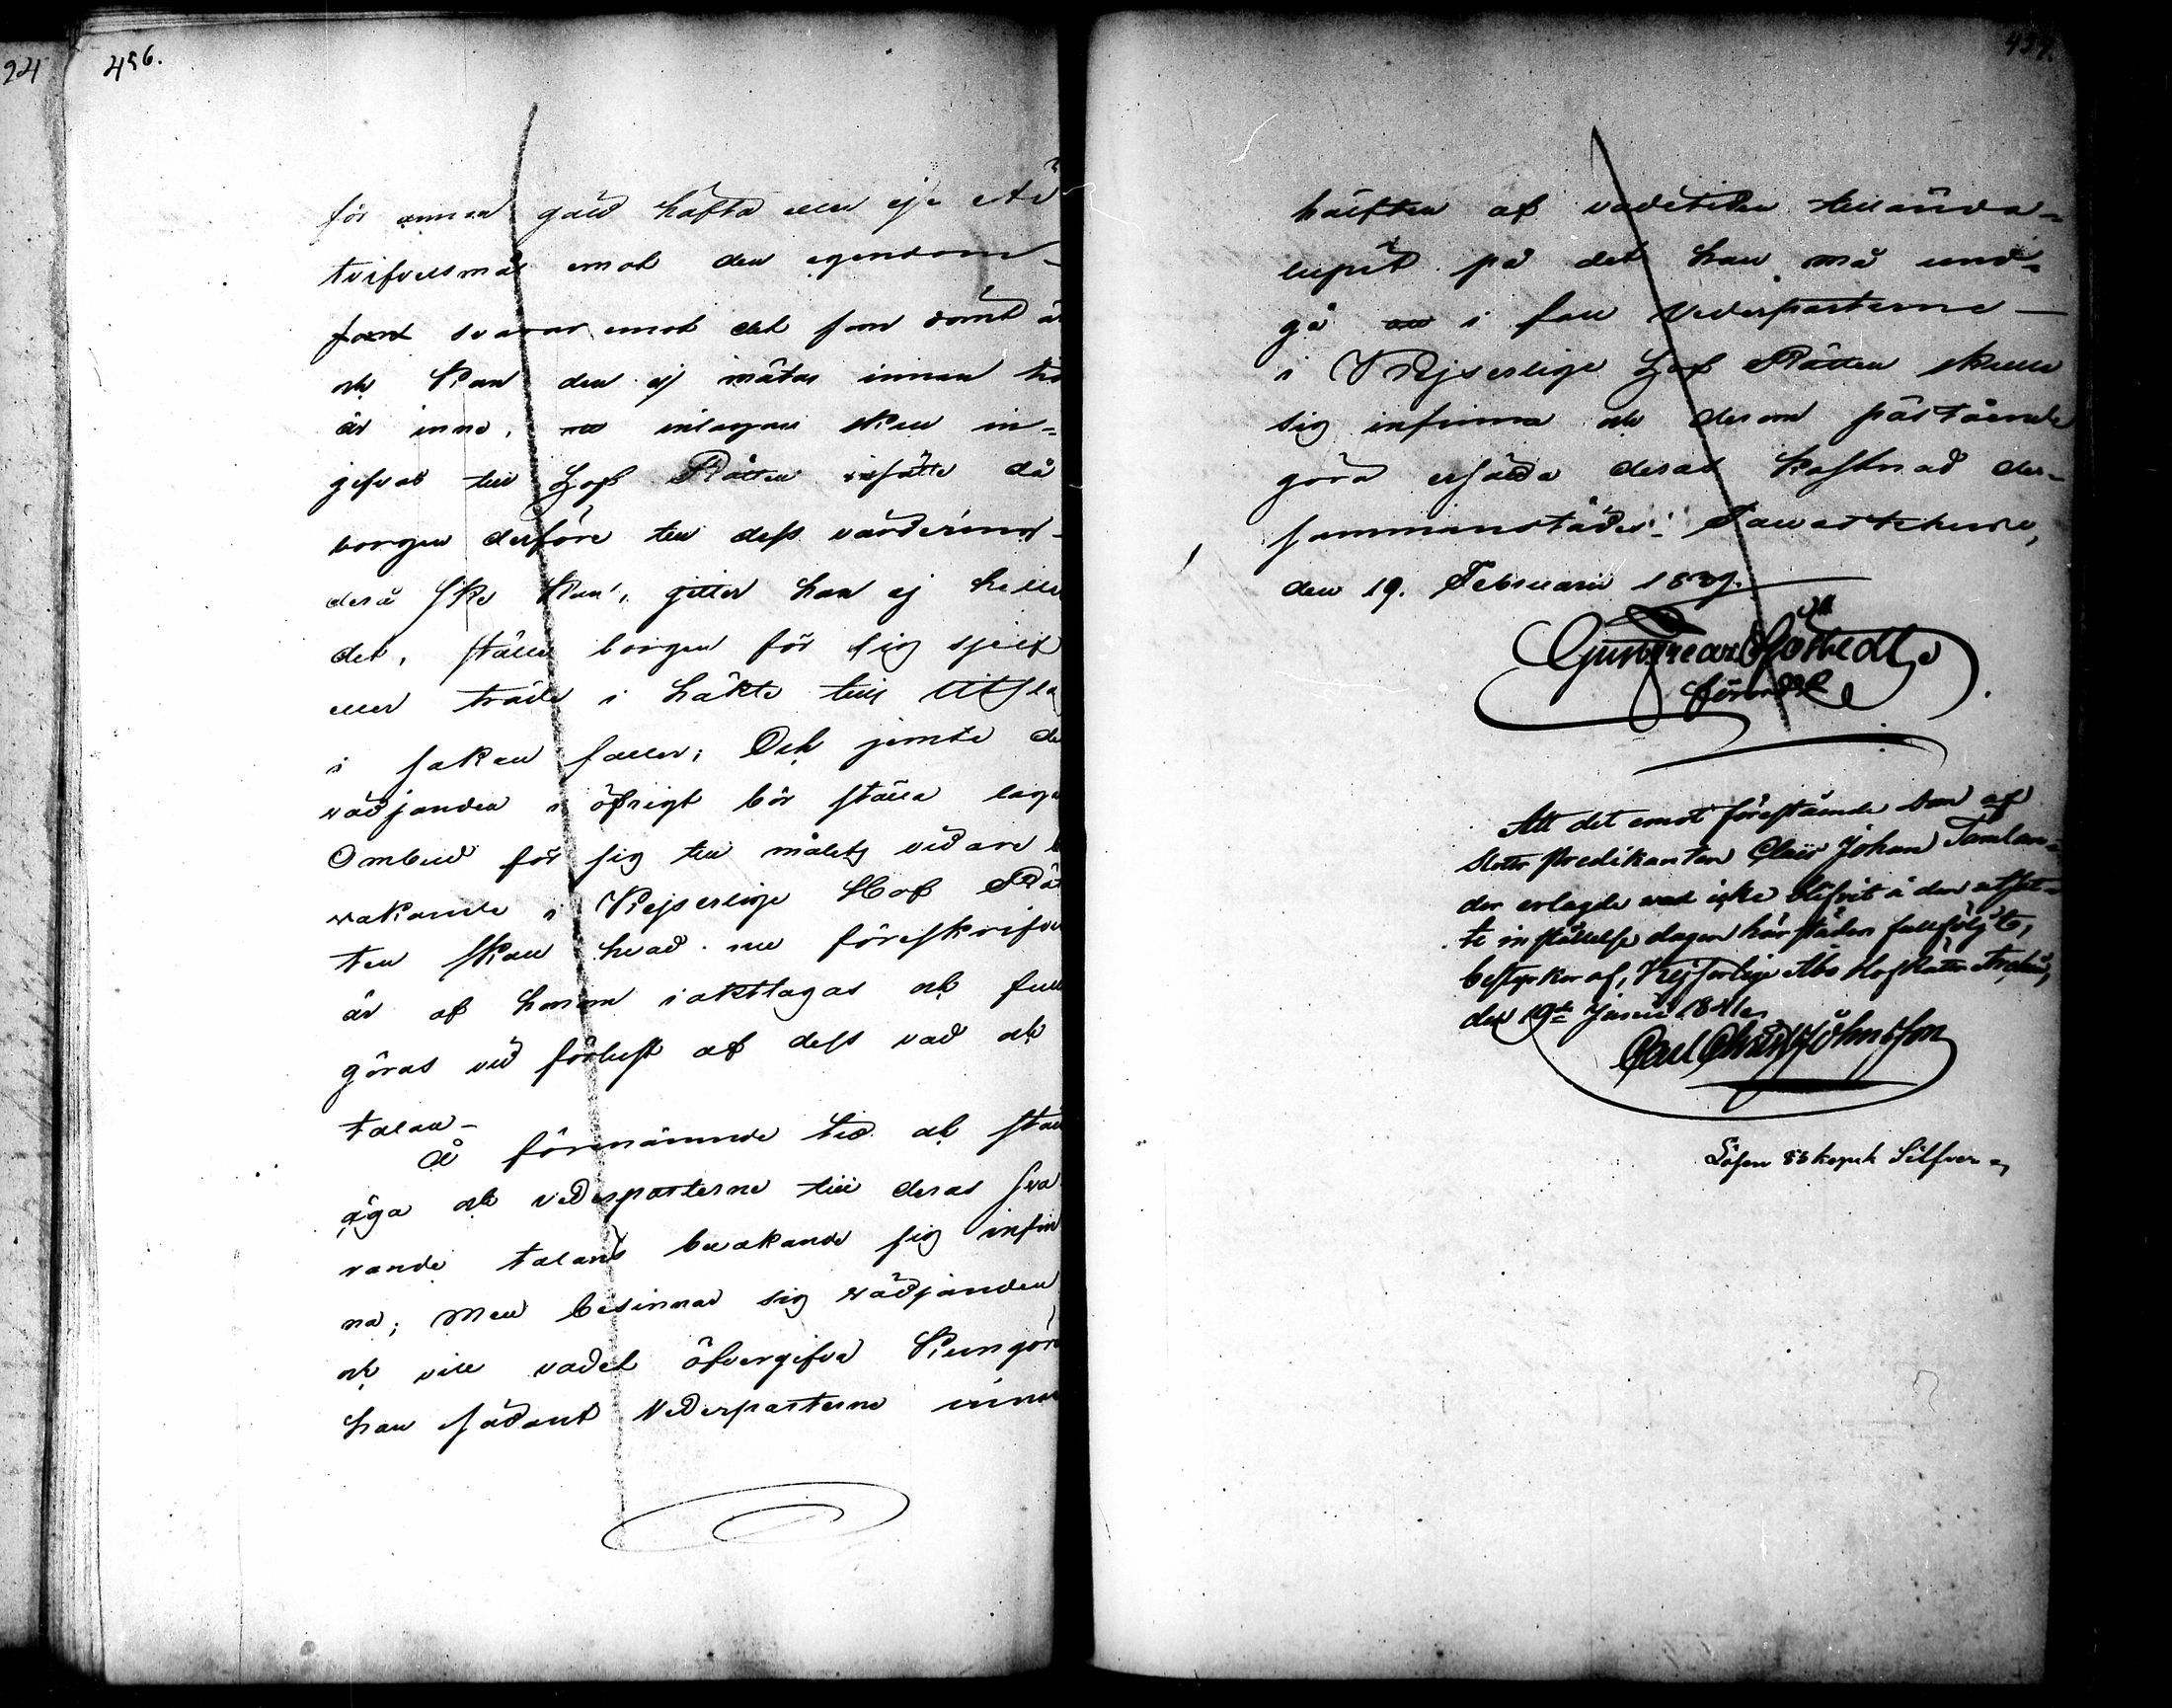 24
456.
för annan gäld häfta eller ej. Är
tvifvelsmål emot den egendom
svarar emot det som dömdt är
och kan den ej mätas innan tid
är inne, inlagan skall in-
gifvas till Hof Rätten sätte då
borgen derföre till dess värdering
derå ske kan, gitter han ej heller
det, ställe borgen för sig sjelf
eller träde i häkte till Utslag
i saken faller; Och jemte det
vädjanden i öfrigt bör ställa laga
Ombud för sig till målets vidare be
vakande i Kejserlige Hof Rät
ten skall hvad nu föreskrifvet
är af honom iakttagas och full
göras vid förlust af dess vad och
talan-
Å förenämnde tid och ställe
äga och vederparterne till deras sva
rande talans bevakande sig infin
na; Men besinnar sig vädjanden
och vill vadet öfvergifva kungöre
han sådant Vederparterne innan
457.
hälften af vadetiden tillända-
lupit på det han må und-
gå i fall Vederparterne
i Kejserlige Hof Rätten skulle
sig infinna och derom påstående
göra ersätta deras kostnad der-
sammanstädes. Tawastehus,
den 19. Februarii 1839.
Att det emot förestående dom af
Slotts Predikanten Claës Johan Tamlan-
der erlagde vad icke blifvit å den utsat-
te inställelse dagen härstädes fullföljdt,
bestyrker af, Kejserlige Åbo HofRätts Archiv,
den 19de Junii 1841.
Carl Christ. Johnsson
Lösen 83 kopek Silfver